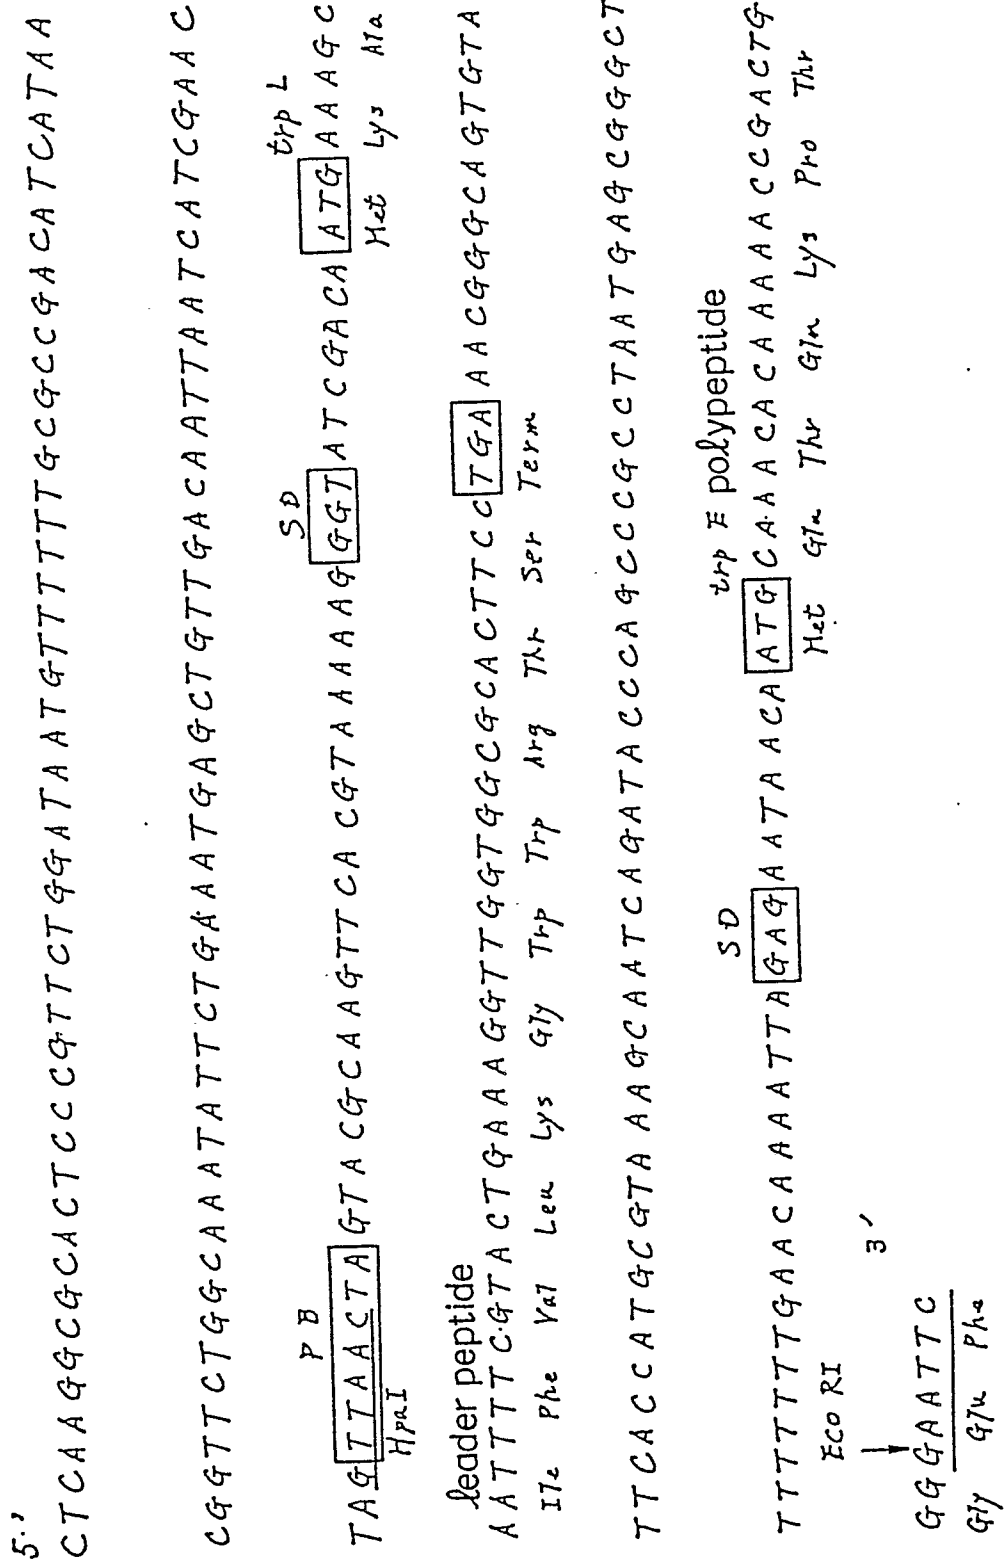 5'
CTCAAGGCGCACTCCCGTTCTGGATAATGTTTTTTGCGCCGACATCATAA
CGGTTCTGGCAAATATTCTGAAATGAGCTGTTGACAATTAATCATCGAAC
P B SD trp L
TAGTTAACTAGTACGCAAGTTCACGTAAAAAGGGTATCGACAATGAAAGC
HpaI Met Lys Ala
leader peptide
AATTTTCGTACTGAAAGGTTGGTGGCGCACTTCCTGAAACGGGCAGTGTA
Ile Phe Val Leu Lys Gly Trp Trp Arg Thr Ser Term
TTCACCATGCGTAAAGCAATCAGATACCCAGCCCGCCTAATGAGCGGGCT
SD trp E polypeptide
TTTTTTTGAACAAAATTAGAGAATAACAATGCAAACACAAAAACCGACTG
Eco RI Met Gln Thr Gln Lys Pro Thr
3'
GGGAATTC
Gly Glu Phe